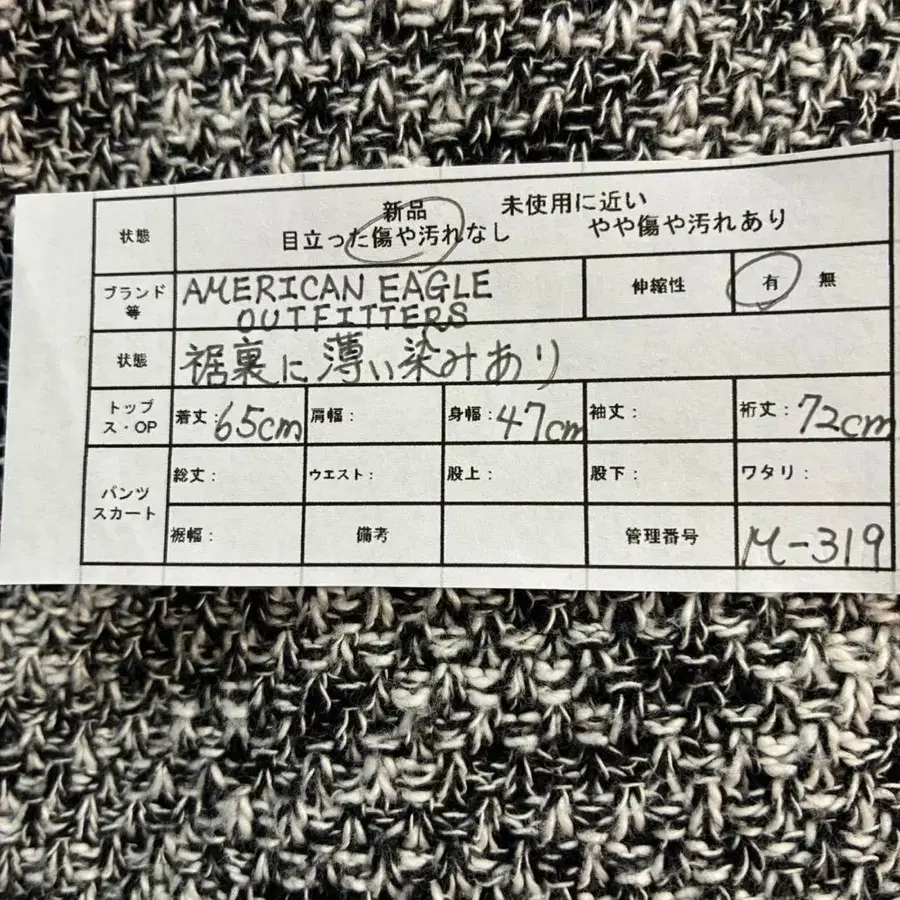 状態
新品 未使用に近い
目立った傷や汚れなし やや傷や汚れあり
ブランド等
AMERICAN EAGLE
OUTFITTERS
伸縮性 有 無
状態 裾裏に薄い染みあり
トップス・OP
着丈:65cm 肩幅: 身幅:47cm 袖丈: 裄丈:72cm
パンツ
スカート
総丈: ウエスト: 股上: 股下: ワタリ:
裾幅: 備考 管理番号 M-319